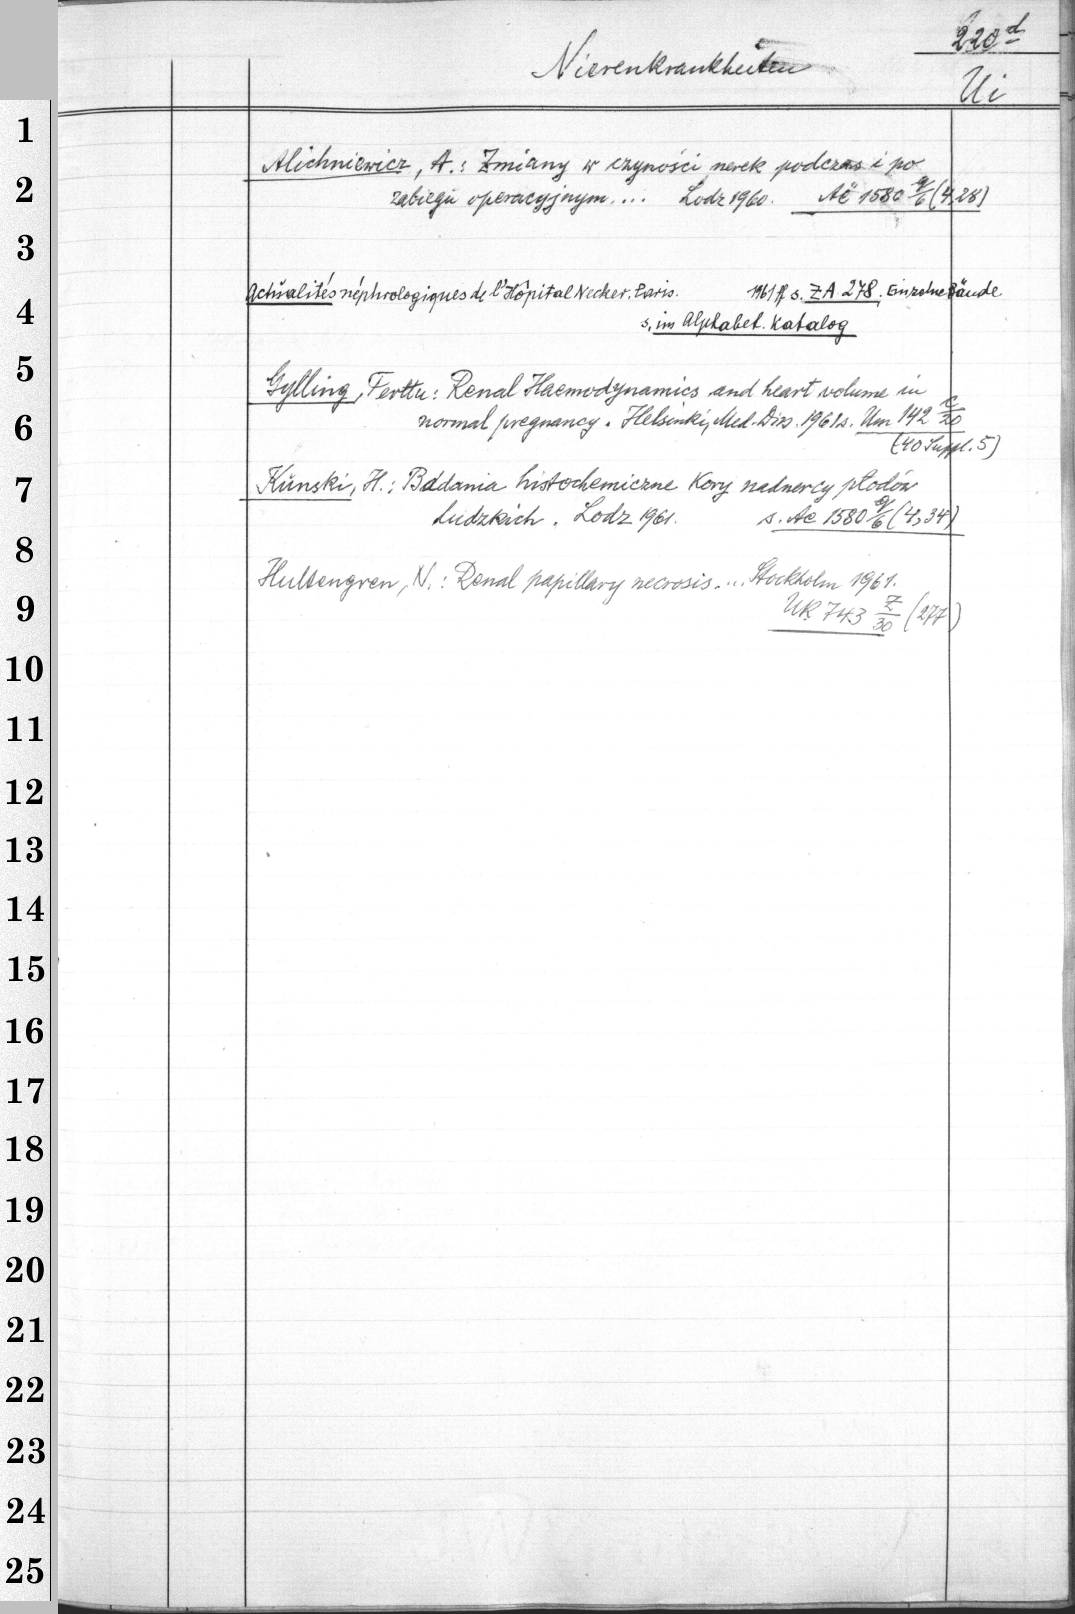 220d
Nierenkrankheiten
Ui
1
Alichniewicz, A.: Zmiany w czyności nerek podczas i po
2
zabiegu operacyjnym.... Lodz 1960. Ac 1580 g/6 (4,28)
3
Actualités néphrologiques de l'Hôpital Necker. Paris. 1961 ff s. ZA 278, Einzelne Bände
4
s. im Alphabet. Katalog
5
Gylling, Terttu: Renal Haemodynamics and heart volume in
6
normal pregnancy. Helsinki, Med. Diss. 1961 s. Um 142 c/20
(40 Suppl. 5)
7
Kŭnski, H.: Badania histochemiczne Kory nadnercy płodów
ludzkich. Lodz 1961. s. Ac 1580 g/6 (4,34)
8
Hultengren, N.: Renal papillary necrosis... Stockholm 1961.
9
UR 743 Z/30 (277)
10
11
12
13
14
15
16
17
18
19
20
21
22
23
24
25